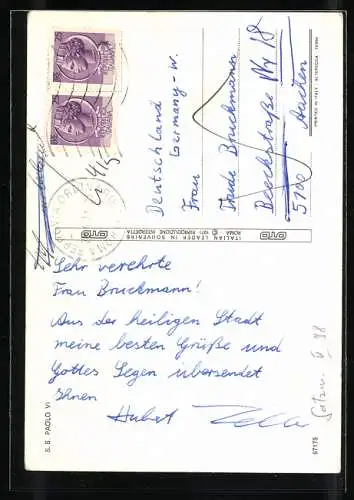 Deutschland
Germany-W.
Frau
Bruckmann
Beeckstraße Nr 18
5100 Aachen
PRINTED IN ITALY
OTO ITALIAN LEADER IN SOUVENIRS
ROMA © 1971 RIPRODUZIONE INTERDETTA OTO
Sehr verehrte
Frau Bruckmann!
Aus der heiligen Stadt
meine besten Grüße und
Gottes Segen übersendet
Ihnen
Hubert
S. S. PAOLO VI
97175